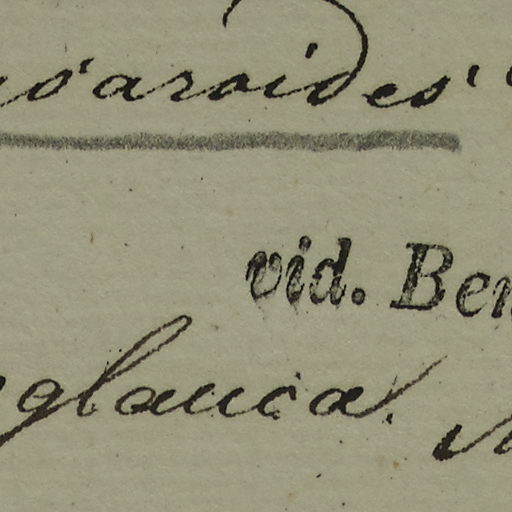 saroides
vid. Ben
glauca.